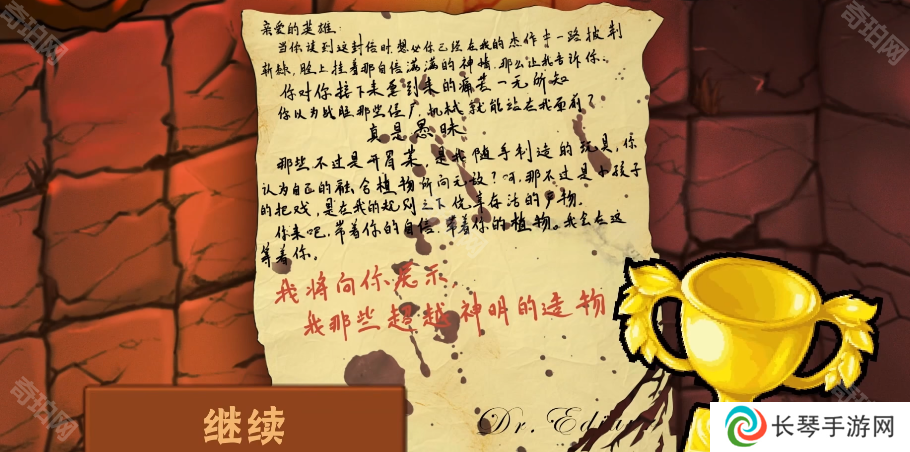 亲爱的英雄:
当你读到这封信时想必你已经在我的杰作中一路披荆
斩棘,脸上挂着那自信满满的神情,那么让我告诉你:
你对你接下来要到来的痛苦一无所知
你以为战胜那些僵尸,机械就能站在我面前?
真是愚昧
那些不过是开胃菜,是我随手制造的玩具,你
认为自己的融合植物所向无敌?呵,那不过是小孩子
的把戏,是在我的规则之下侥幸存活的产物.
你来吧,带着你的自信,带着你的植物。我会在这
等着你。
我将向你展示,
我那些超越神明的造物
Dr.
继续
长琴手游网
奇珀网
奇珀网
奇珀网
奇珀网